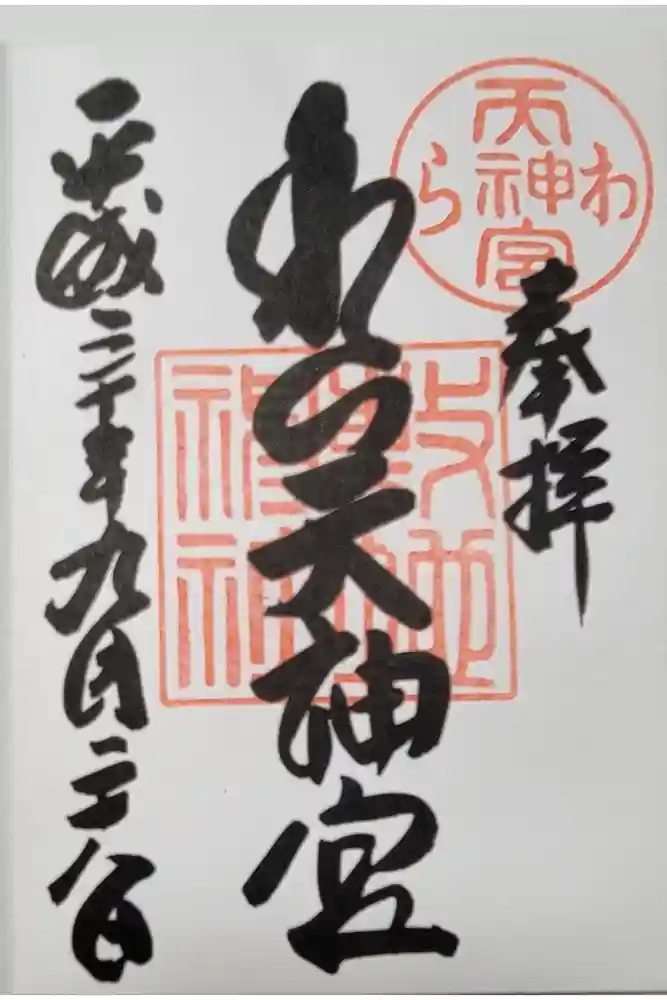 わら天神宮
奉拝
わら天神宮
平成三十年九月二十八日